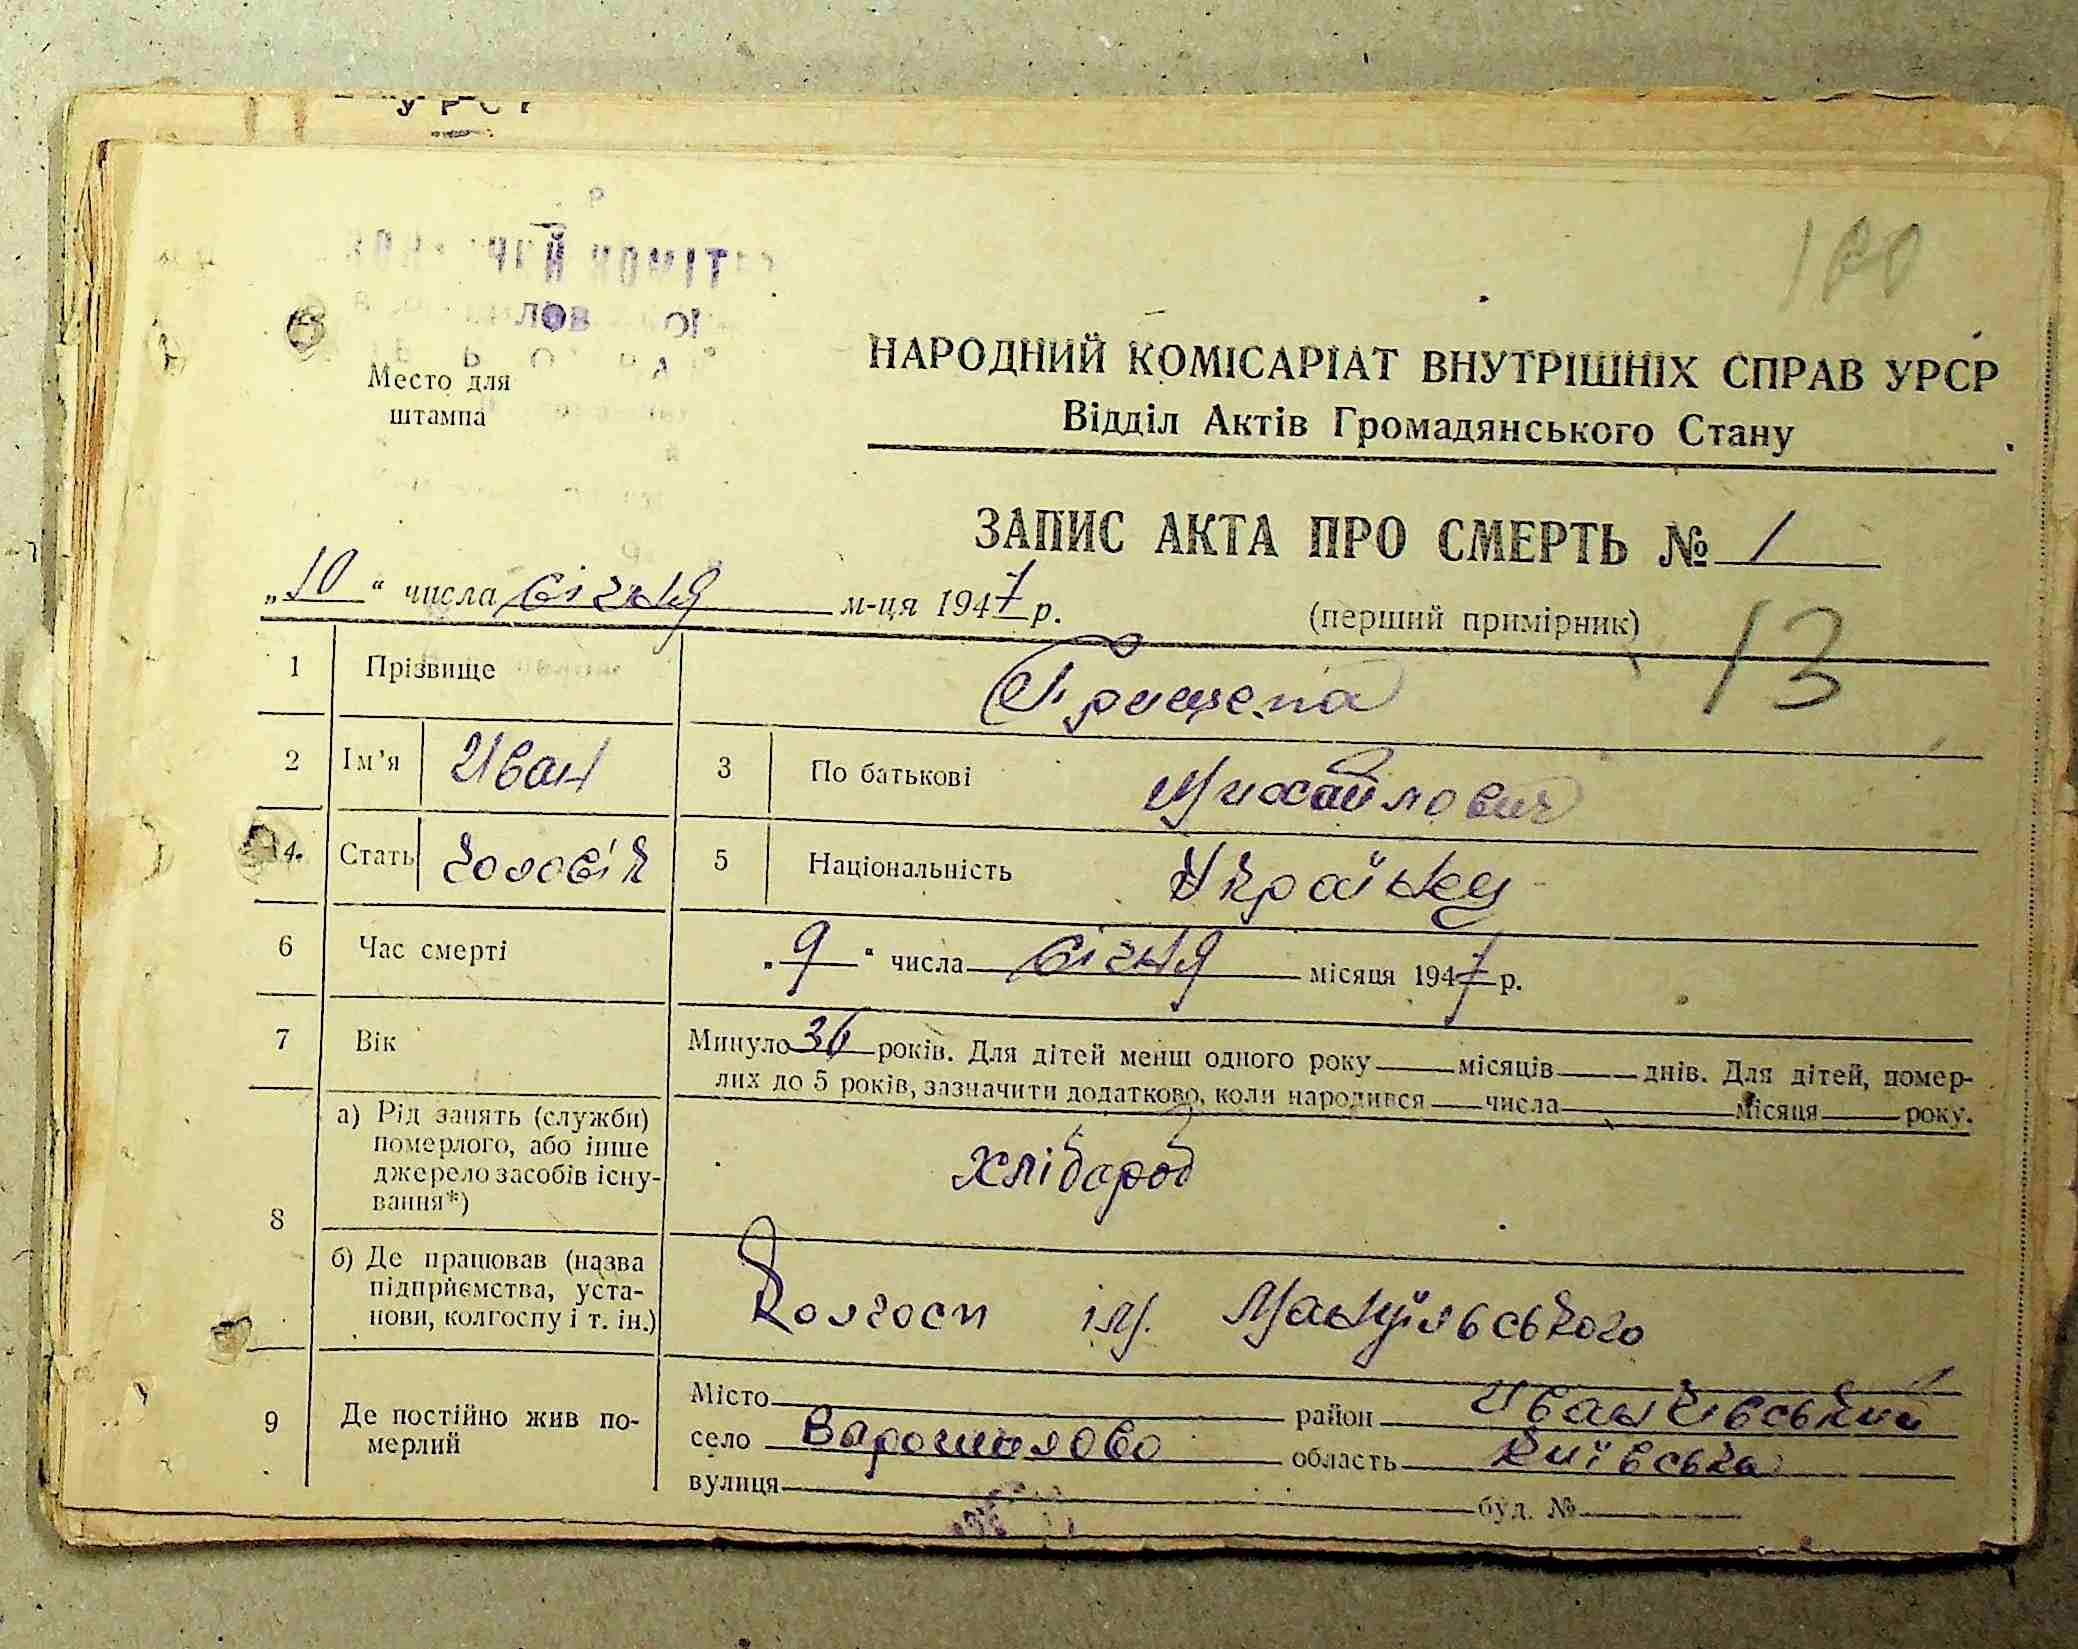 УРСР
180
комітет
Место для
штампа
НАРОДНИЙ КОМІСАРІАТ ВНУТРІШНІХ СПРАВ УРСР
Відділ Актів Громадянського Стану
ЗАПИС АКТА ПРО СМЕРТЬ № 1
„10“ числа січня м-ця 1947 р. (перший примірник)
13
1 Прізвище Грищепа
2 Ім'я Иван 3 По батькові Михайлович
4. Стать чоловік 5 Національність Українец
6 Час смерті „9“ числа січня місяця 1947 р.
7 Вік Минуло 36 років. Для дітей менш одного року місяців днів. Для дітей, помер-
лих до 5 років, зазначити додатково, коли народився числа місяця року.
8 а) Рід занять (служби)
померлого, або інше
джерело засобів існу-
вання*) хлібороб
б) Де працював (назва
підприємства, уста-
нови, колгоспу і т. ін.) Колгосп ім. Мануїльського
9 Де постійно жив по-
мерлий
Місто район Иванківський
село Варошилово область Київська
вулиця буд. №